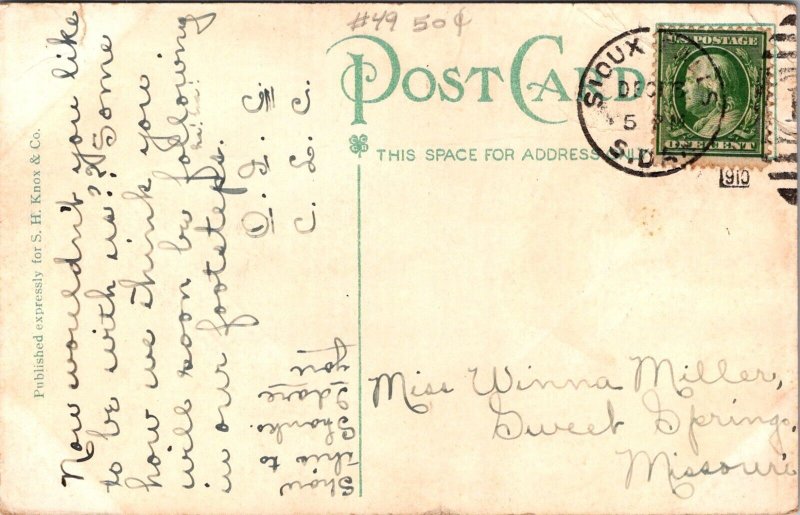 #49 50¢
POST CARD
THIS SPACE FOR ADDRESS ONLY
SIOUX
DEC
5
S.D.
1910
U.S. POSTAGE
ONE CENT
Published expressly for S. H. Knox & Co.
Now wouldn't you like
to be with us?? Some
how we think you
will soon be following
in our footsteps.
ha. ha.
O. J. C.
C. L. C.
Show
this to
Shanks.
I dare
you
Miss Winna Miller,
Sweet Springs,
Missouri